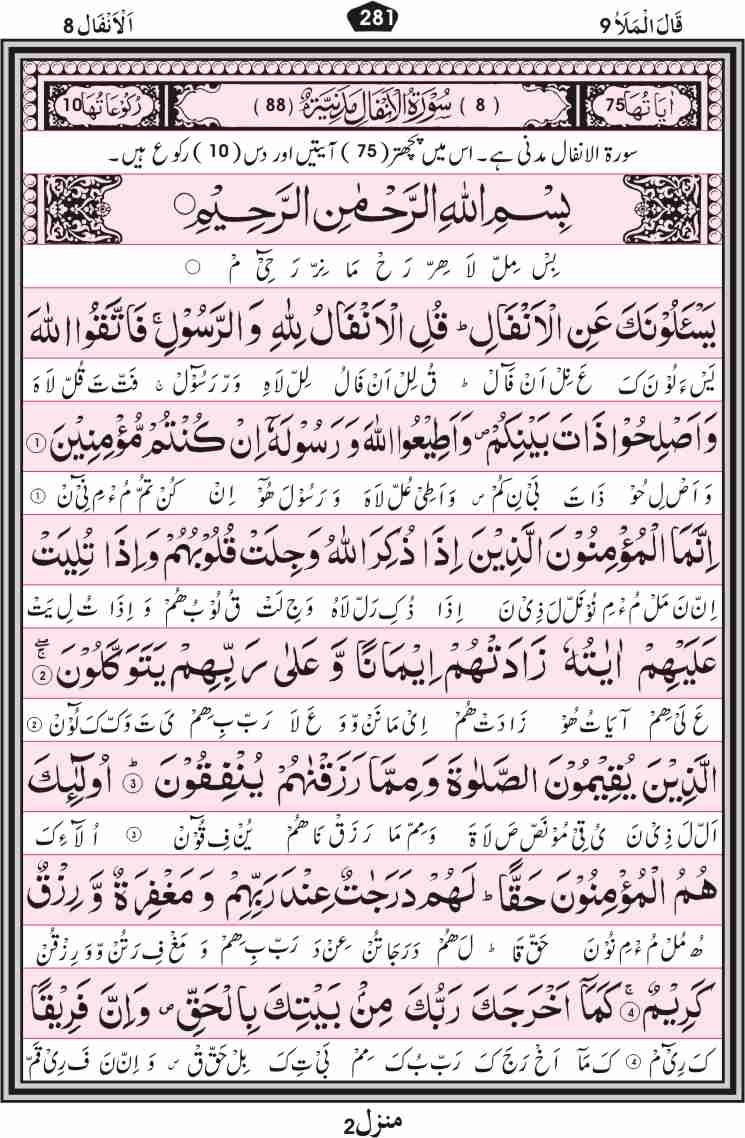 قَالَ الْمَلَاُ 9
281
اَلْاَنْفَال 8
اٰيَاتُهَا 75
( 8 ) سُوْرَةُ الْاَنْفَالِ مَدَنِيَّةٌ ( 88 )
رُكُوْعَاتُهَا 10
سورۃ الانفال مدنی ہے۔ اس میں پچھتر( 75 ) آیتیں اور دس ( 10 ) رکوع ہیں۔
بِسْمِ اللّٰهِ الرَّحْمٰنِ الرَّحِيْمِ ○
بِسْ مِلّ لَا هِرّ رَ حْ مَا نِرّ رَ حِيْٓ مْ ○
يَسْـَٔلُوْنَكَ عَنِ الْاَنْفَالِ ؕ قُلِ الْاَنْفَالُ لِلّٰهِ وَ الرَّسُوْلِ ۚ فَاتَّقُوا اللّٰهَ
يَسْ ءَ لُوْ نَ كَ عَ نِلْ اَنْ فَآلْ ؕ قُ لِلْ اَنْ فَالُ لِلْ لَاهِ وَرْ رَسُوْٓلْ ۚ فَتْ تَ قُلّ لَا هَ
وَ اَصْلِحُوْا ذَاتَ بَيْنِكُمْ ۪ وَ اَطِيْعُوا اللّٰهَ وَ رَسُوْلَهٗۤ اِنْ كُنْتُمْ مُّؤْمِنِيْنَ ۝۱
وَ اَصْ لِ حُوْ ذَا تَ بَىْ نِ كُمْ ۪ وَ اَطِىْ عُلّ لَا هَ وَ رَسُوْ لَ هُوْٓ اِنْ كُنْ تُمّ مُ ءْ مِ نِىْٓ نْ ۝۱
اِنَّمَا الْمُؤْمِنُوْنَ الَّذِيْنَ اِذَا ذُكِرَ اللّٰهُ وَ جِلَتْ قُلُوْبُهُمْ وَ اِذَا تُلِيَتْ
اِنّ نَ مَلْ مُ ءْ مِ نُوْ نَلّ لَ ذِىْ نَ اِذَا ذُ كِ رَلّ لَا هُ وَ جِ لَتْ قُ لُوْ بُ هُمْ وَ اِ ذَا تُ لِ يَتْ
عَلَيْهِمْ اٰيٰتُهٗ زَادَتْهُمْ اِيْمَانًا وَّ عَلٰى رَبِّهِمْ يَتَوَكَّلُوْنَ ۝۲ۚۖ
عَ لَىْ هِمْ آ يَا تُ هُوْ زَا دَتْ هُمْ اِىْ مَا نَنْ وّ وَ عَ لَا رَبّ بِ هِمْ ىَ تَ وَ كّ كَ لُوْٓنْ ۝۲
الَّذِيْنَ يُقِيْمُوْنَ الصَّلٰوةَ وَ مِمَّا رَزَقْنٰهُمْ يُنْفِقُوْنَ ۝۳ؕ اُولٰٓئِكَ
اَلّ لَ ذِىْ نَ ىُ قِىْ مُوْ نَصّ صَ لَا ةَ وَ مِمْ مَا رَ زَقْ نَا هُمْ ىُنْ فِ قُوْٓنْ ۝۳ اُ لَآ ءِ كَ
هُمُ الْمُؤْمِنُوْنَ حَقًّا ؕ لَهُمْ دَرَجٰتٌ عِنْدَ رَبِّهِمْ وَ مَغْفِرَةٌ وَّ رِزْقٌ
هُ مُلْ مُ ءْ مِ نُوْ نَ حَقّ قَا ؕ لَ هُمْ دَرَجَا تُنْ عِنْ دَ رَبّ بِ هِمْ وَ مَغْ فِ رَتُنْ وّ وَ رِزْ قُنْ
كَرِيْمٌ ۝۴ۚ كَمَاۤ اَخْرَجَكَ رَبُّكَ مِنْۢ بَيْتِكَ بِالْحَقِّ ۪ وَ اِنَّ فَرِيْقًا
كَ رِىْٓ مْ ۝۴ كَ مَآ اَخْ رَجَ كَ رَبّ بُ كَ مِمْ بَىْ تِ كَ بِلْ حَقّ قْ ۪ وَ اِنّ نَ فَ رِىْ قَمّ
منزل2